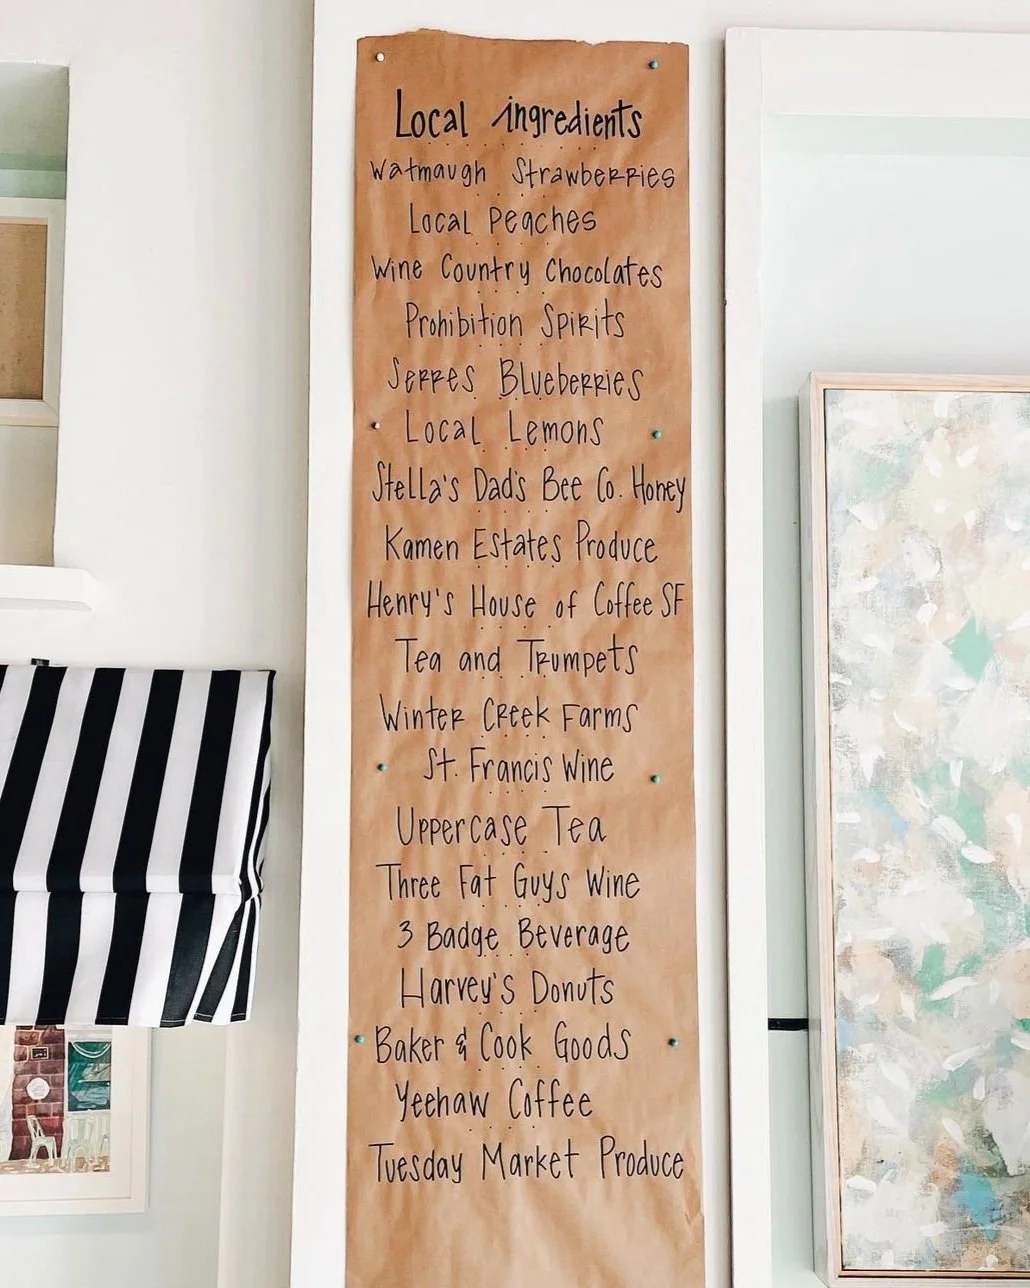 Local ingredients
Watmaugh Strawberries
Local Peaches
Wine Country Chocolates
Prohibition Spirits
Serres Blueberries
Local Lemons
Stella's Dad's Bee Co. Honey
Kamen Estates Produce
Henry's House of Coffee SF
Tea and Trumpets
Winter Creek Farms
St. Francis Wine
Uppercase Tea
Three Fat Guys Wine
3 Badge Beverage
Harvey's Donuts
Baker & Cook Goods
Yeehaw Coffee
Tuesday Market Produce